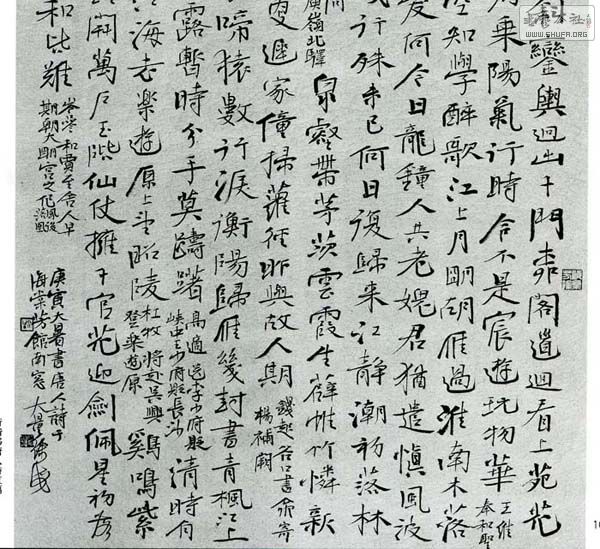 鑾輿迥出千門柳閣道迴看上苑花
為乘陽氣行時令不是宸遊玩物華
王維
奉和聖
空知學醉歌江上月明胡雁過淮南木落
何今日龍鐘人共老愧君猶遣慎風波
我行殊未已何日復歸來江靜潮初落林
嶺北驛
泉壑帶茅茨雲霞生薜帷竹憐新
更遲家僮掃蘿徑昨與故人期
錢起谷口書齋寄
楊補闕
啼猿數行淚衡陽歸雁幾封書青楓江上
露暫時分手莫躊躇
高適送李少府貶
峽中王少府貶長沙
清時有
海去樂遊原上望昭陵
杜牧將赴吳興
登樂遊原
雞鳴紫
開萬戶玉階仙仗擁千官花迎劍佩星初落
和皆難
岑參和賈至舍人早
朝大明宮之作
庚寅大暑書唐人詩于
海棠芳館南窗
WWW.SHUFA.ORG